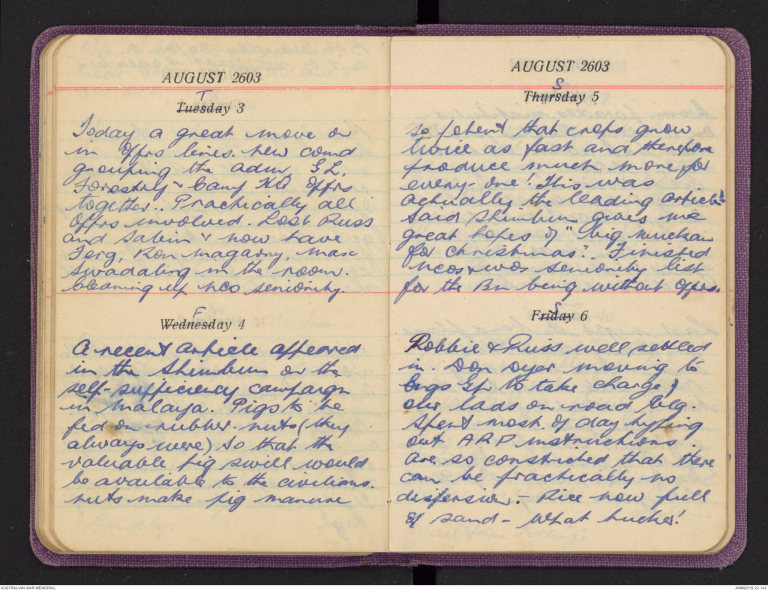 AUGUST 2603
T
Tuesday 3
Today a great move on
in Offrs lines. New comd
grouping the adm, S.L.
Forestry & Camp HQ Offrs
together. Practically all
Offrs involved. Lost Russ
and Sabin & now have
Ferg, Ron Magarry, Max
in the room.
Cleaning up NCO seniority.
F
Wednesday 4
A recent article appeared
in the Shimbun on the
self-sufficiency campaign
in Malaya. Pigs to be
fed on rubber nuts (they
always were) so that the
valuable pig swill would
be available to the civilians.
nuts make pig manure
AUGUST 2603
S
Thursday 5
so potent that crops grow
twice as fast and therefore
produce much more for
every-one! This was
actually the leading article!
Said Shimbun gives me
great hopes of "big
for Christmas". Finished
NCOs & seniority list
for the Bn being without Offrs.
S
Friday 6
Robbie & Russ well settled
in. Don Dyer moving to
up to take charge of
our lads on road bldg.
Spent most of day typing
out ARP instructions.
Are so constricted that there
can be practically no
dispersion - Rice now full
of sand - What tucker!
AUSTRALIAN WAR MEMORIAL